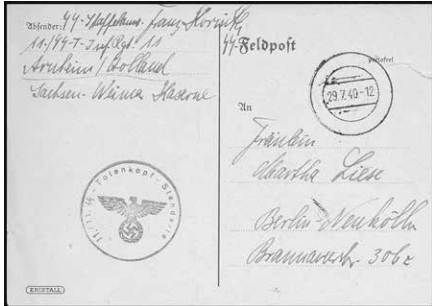 Absender: SS-Staffelmann Franz Korinth,
11./SS-T-Inf.Rgt. 11
Arnheim/Holland
Sachsen-Weimar Kaserne
SS-Feldpost
portofrei
29.7.40-12
An
Fräulein
Martha Liese
Berlin-Neukölln
30b
Totenkopf-Standarte
KRISTALL